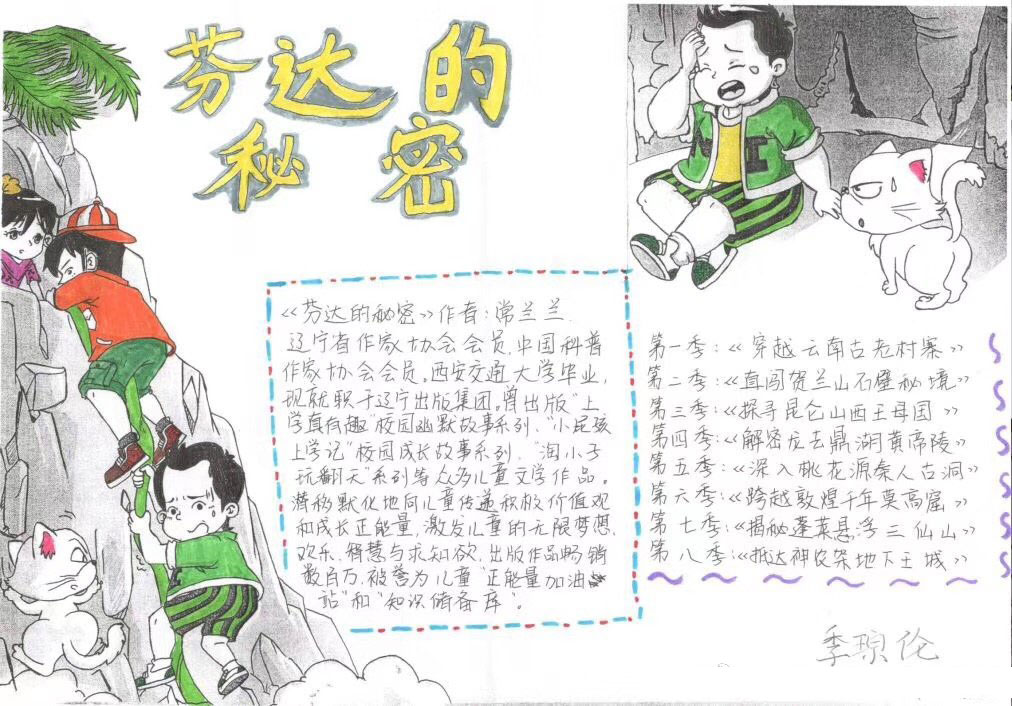 芬达的
秘密
《芬达的秘密》作者：常兰兰
辽宁省作家协会会员，中国科普
作家协会会员。西安交通大学毕业，
现就职于辽宁出版集团。曾出版“上
学真有趣”校园幽默故事系列、“小屁孩
上学记”校园成长故事系列、“淘小子
玩翻天”系列等众多儿童文学作品。
潜移默化地向儿童传递积极价值观
和成长正能量，激发儿童的无限梦想、
欢乐、智慧与求知欲，出版作品畅销
数百万，被誉为儿童“正能量加油
站”和“知识储备库”。
第一季：《穿越云南古老村寨》
第二季：《直闯贺兰山石壁秘境》
第三季：《探寻昆仑山西王母国》
第四季：《解密龙去鼎湖黄帝陵》
第五季：《深入桃花源秦人古洞》
第六季：《跨越敦煌千年莫高窟》
第七季：《揭秘蓬莱悬浮三仙山》
第八季：《抵达神农架地下王城》
季琼伦